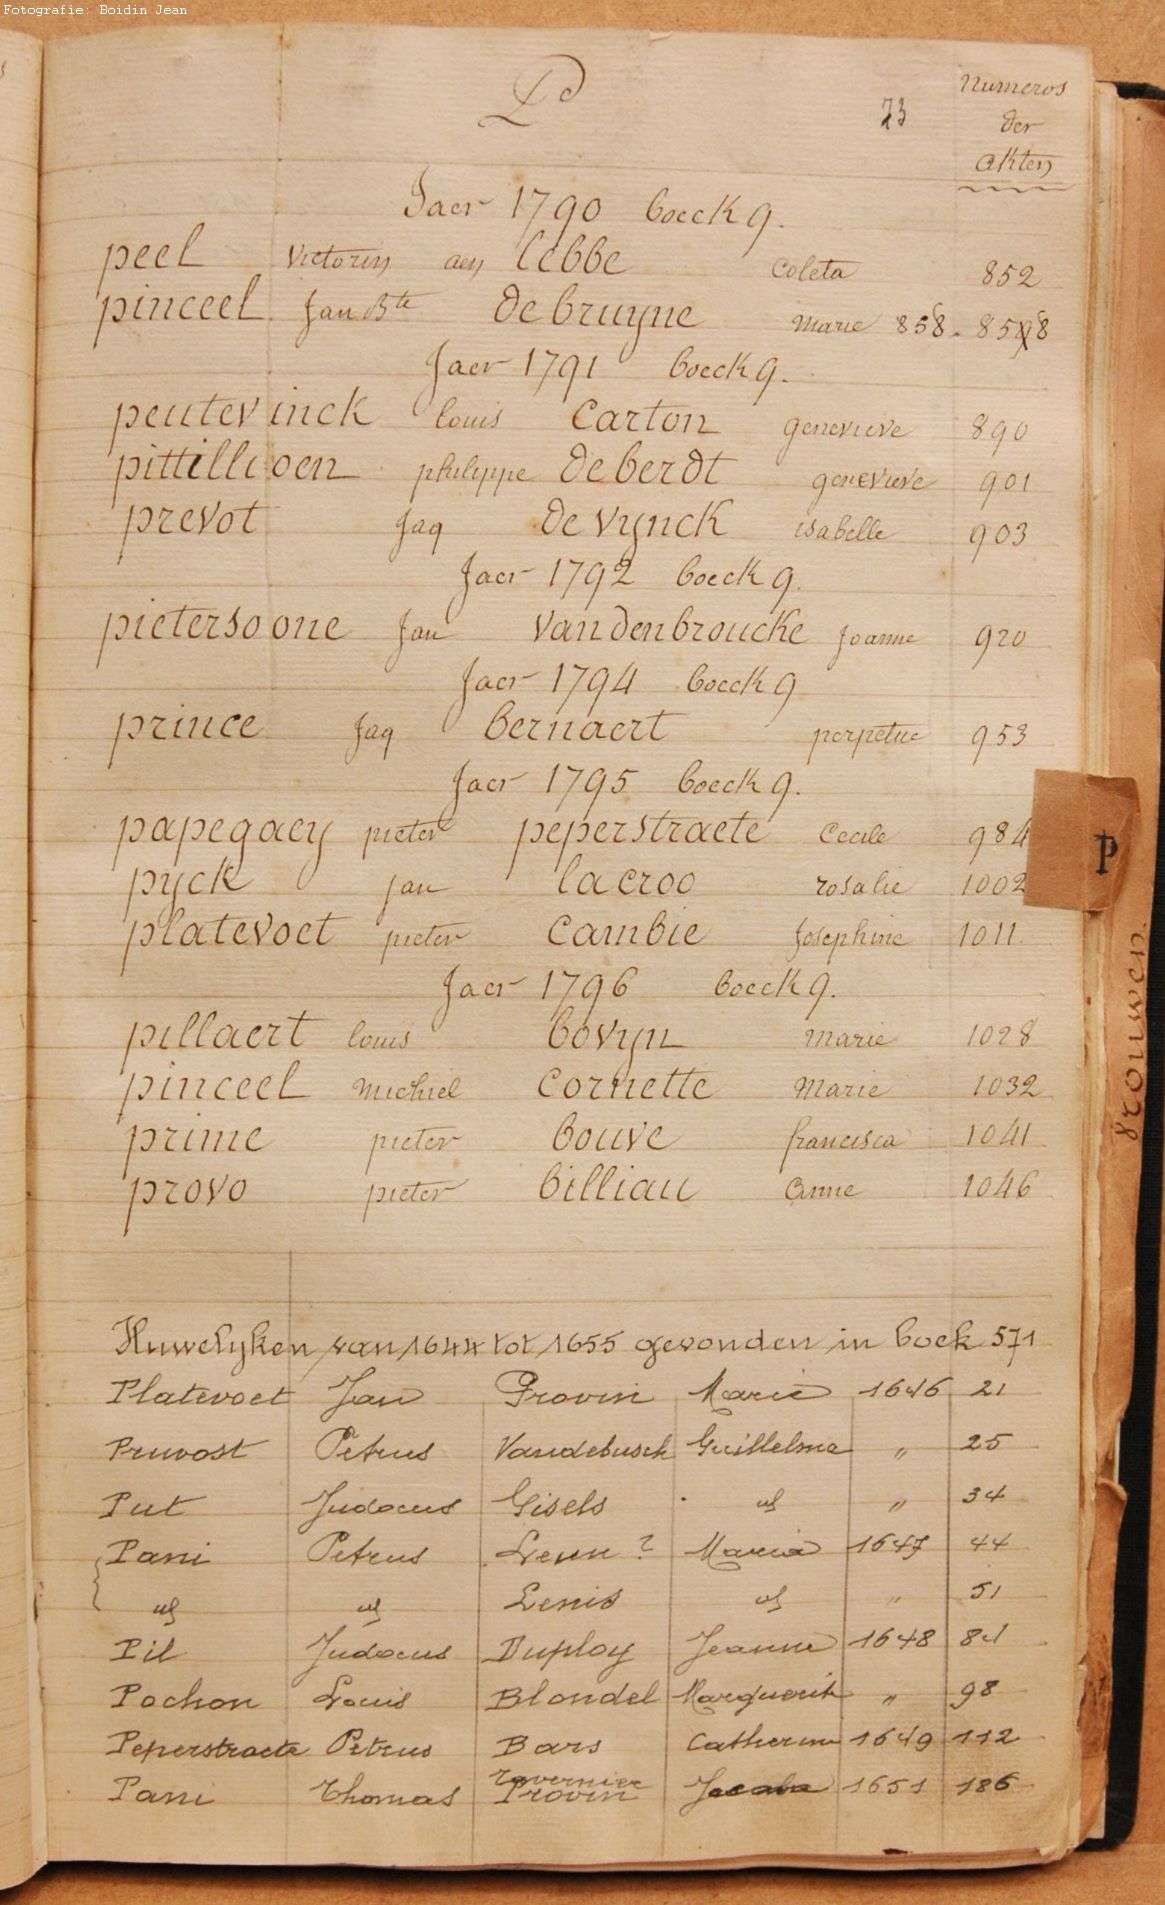 Fotografie: Boidin Jean
P
73
Numeros
der
akten
Jaer 1790 boeck 9.
peel victorin aen lebbe coleta 852
pinceel Jan Bte de bruyne marie 858. 8598
Jaer 1791 boeck 9.
peutevinck louis carton genevieve 890
pittillioen philippe de berdt genevieve 901
prevot Jaq de vynck isabelle 903
Jaer 1792 boeck 9.
pietersoone Jan vandenbroucke Joanne 920
Jaer 1794 boeck 9
prince Jaq bernaert perpetue 953
Jaer 1795 boeck 9.
papegaey pieter peperstraete Cecile 984
P
pyck jan lacroo rosalie 1002
platevoet pieter cambie Josephine 1011
Jaer 1796 boeck 9.
pillaert louis bovyn marie 1028
pinceel michiel cornette marie 1032
prime pieter bouve francisca 1041
provo pieter billiau anne 1046
vrouwen
Huwelyken van 1644 tot 1655 gevonden in boek 571
Platevoet Jan Provin Marie 1646 21
Pruvost Petrus Vandebusch Guillelma " 25
Put Judocus Gisels id " 34
Pani Petrus Leun ? Maria 1647 44
id id Lenis id " 51
Pil Judocus Duploy Jeanne 1648 84
Pochon Louis Blondel Marguerit " 98
Peperstraete Petrus Bars Catherine 1649 112
Tavernier
Pani Thomas Provin Jacoba 1651 186